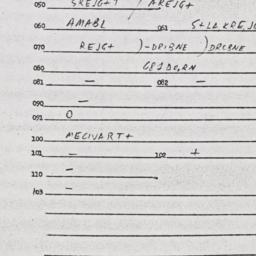 050 SREJG+1 / AREJG+
060 AMABL 061 S+LAKREJG
070 REJG+ )-DRIBNE )DRCBNE
080 G81DC,RN
081 - 082 -
090 -
091 0
100 MECIVART+
101 - 102 +
110 -
103 -